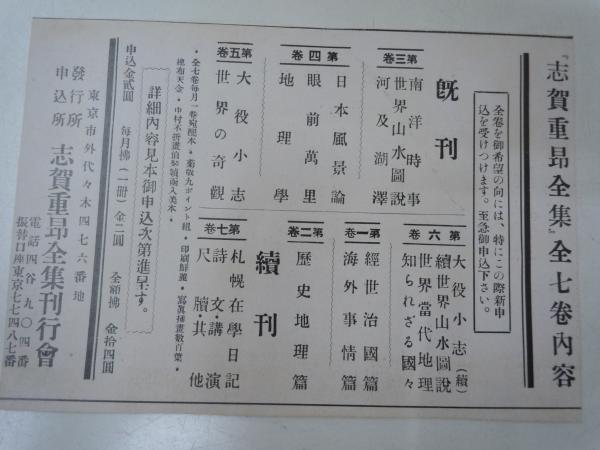 『志賀重昂全集』全七卷内容
全卷を御希望の向には、特にこの際新申
込を受けつけます。至急御申込下さい。
既刊
第三卷
南洋時事
世界山水圖説
河及湖澤
第四卷
日本風景論
眼前萬里
地理學
第五卷
大役小志
世界の奇觀
續刊
第六卷
大役小志(續)
續世界山水圖説
世界當代地理
知られざる國々
第一卷
經世治國篇
海外事情篇
第二卷
歴史地理篇
第七卷
札幌在學日記
詩文・講演
尺牘・其他
・全七卷毎月一卷宛配本・菊版九ポイント組・印刷鮮麗・寫眞挿畫數百葉・
總布天金・中村不折畫伯裝幀函入美本・
詳細内容見本御申込次第進呈す。
申込金貳圓 毎月拂(一册)金二圓 全額拂 金拾四圓
東京市外代々木四七六番地
發行所
申込所
志賀重昂全集刊行會
電話四谷九〇四番
振替口座東京七七四八七番